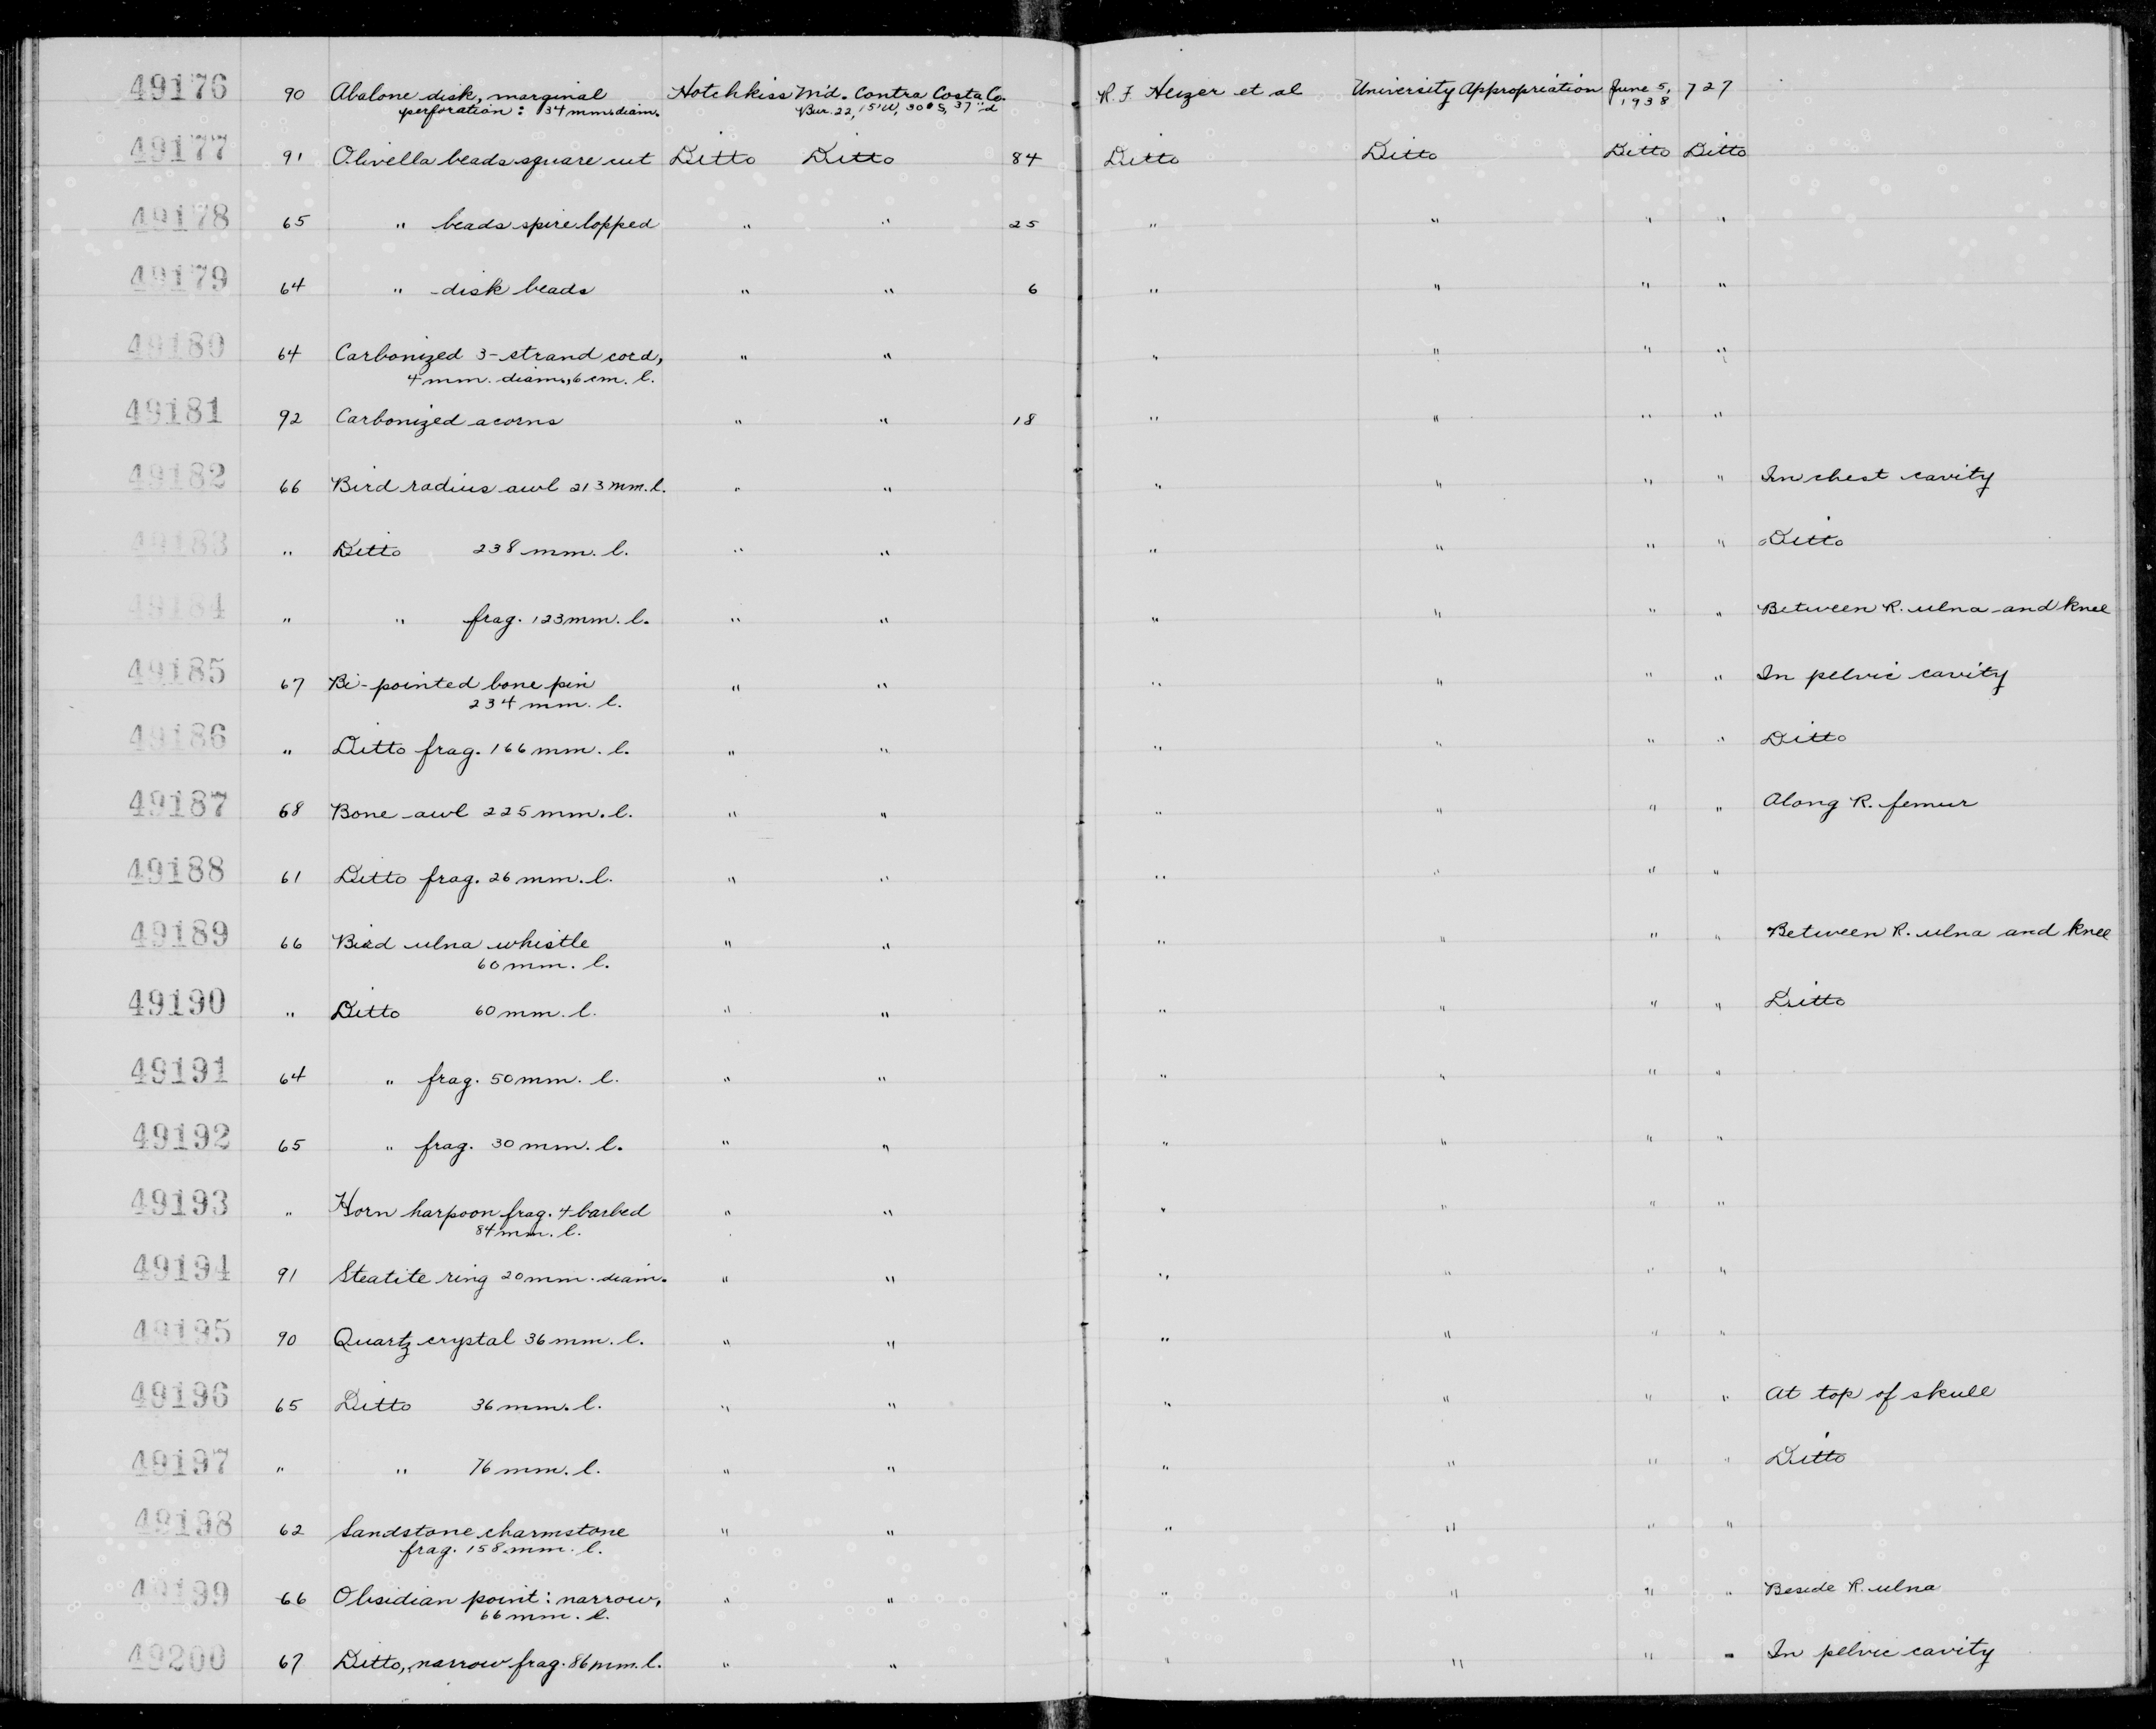 49176 90 Abalone disk, marginal Hotchkiss Md. Contra Costa Co. R. F. Heizer et al University Appropriation June 5, 727
perforation: 34 mm. diam. Bur. 22, 15'W, 30° S, 37" d 1938
49177 91 Olivella beads square cut Ditto Ditto 84 Ditto Ditto Ditto Ditto
49178 65 " beads spire lopped " " 25 " " " "
49179 64 " disk beads " " 6 " " " "
49180 64 Carbonized 3-strand cord, " " " " " "
4 mm. diam., 6 cm. l.
49181 92 Carbonized acorns " " 18 " " " "
49182 66 Bird radius awl 213 mm. l. " " " " " " In chest cavity
49183 " Ditto 238 mm. l. " " " " " " Ditto
49184 " " frag. 123 mm. l. " " " " " " Between R. ulna and knee
49185 67 Bi-pointed bone pin " " " " " " In pelvic cavity
234 mm. l.
49186 " Ditto frag. 166 mm. l. " " " " " " Ditto
49187 68 Bone awl 225 mm. l. " " " " " " Along R. femur
49188 61 Ditto frag. 26 mm. l. " " " " " "
49189 66 Bird ulna whistle " " " " " " Between R. ulna and knee
60 mm. l.
49190 " Ditto 60 mm. l. " " " " " " Ditto
49191 64 " frag. 50 mm. l. " " " " " "
49192 65 " frag. 30 mm. l. " " " " " "
49193 " Horn harpoon frag. 4 barbed " " " " " "
84 mm. l.
49194 91 Steatite ring 20 mm. diam. " " " " " "
49195 90 Quartz crystal 36 mm. l. " " " " " "
49196 65 Ditto 36 mm. l. " " " " " " At top of skull
49197 " " 76 mm. l. " " " " " " Ditto
49198 62 Sandstone charmstone " " " " " "
frag. 158 mm. l.
49199 66 Obsidian point: narrow, " " " " " " Beside R. ulna
66 mm. l.
49200 67 Ditto, narrow frag. 86 mm. l. " " " " " " In pelvic cavity